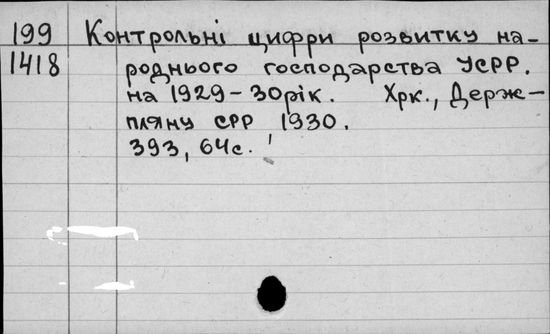 199 Контрольні цифри розвитку на-
1418 роднього господарства УСРР.
на 1929-30 рік. Хрк., Держ-
пляну СРР 1930.
393, 64 с.